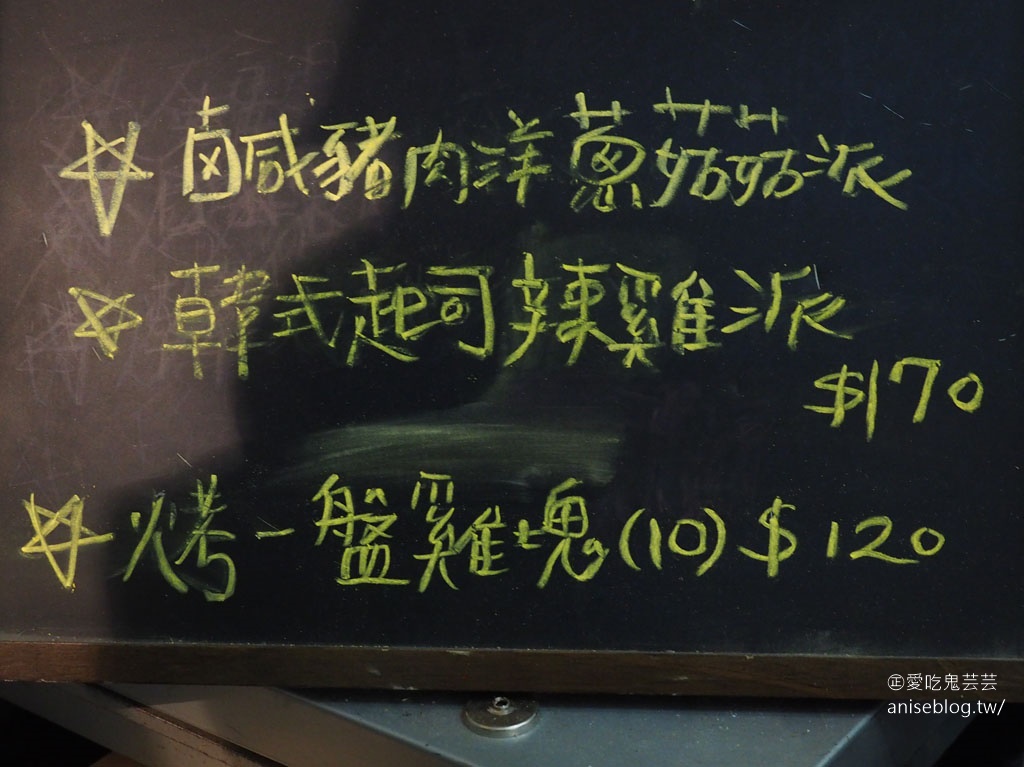 ☆ 鹹豬肉洋蔥菇菇派
☆ 韓式起司辣雞派
$170
☆ 烤一盤雞塊(10) $120
㊣愛吃鬼芸芸
aniseblog.tw/